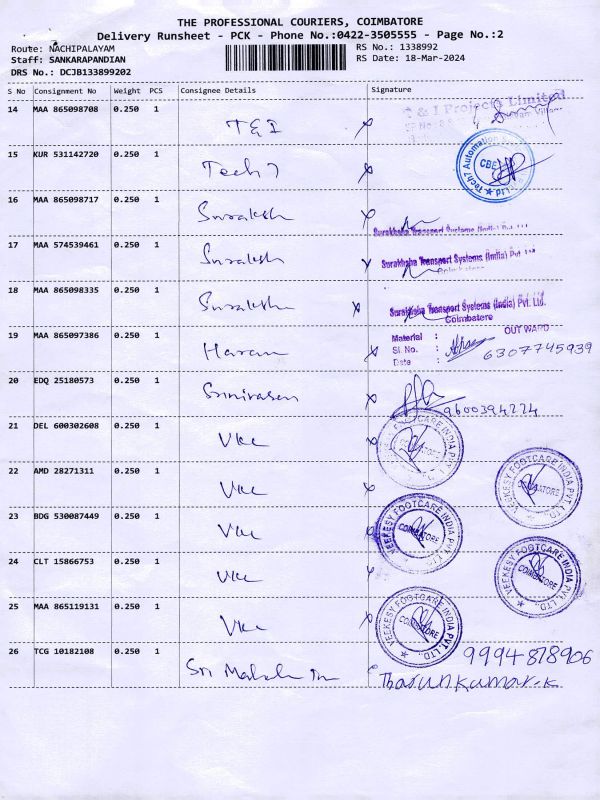 THE PROFESSIONAL COURIERS, COIMBATORE
Delivery Runsheet - PCK - Phone No.:0422-3505555 - Page No.:2
Route: NACHIPALAYAM RS No.: 1338992
Staff: SANKARAPANDIAN RS Date: 18-Mar-2024
DRS No.: DCJB133899202
S No Consignment No Weight PCS Consignee Details Signature
14 MAA 865098708 0.250 1 T&I T & I Projects Limited
15 KUR 531142720 0.250 1 Tech 7 Tech7 Automation CBE
16 MAA 865098717 0.250 1 Suraksh Surakksha Transport Systems (India) Pvt. Ltd
17 MAA 574539461 0.250 1 Suraksh Surakksha Transport Systems (India) Pvt. Ltd
Coimbatore
18 MAA 865098335 0.250 1 Suraksh Surakksha Transport Systems (India) Pvt. Ltd.
Coimbatore
19 MAA 865097386 0.250 1 Haran Material : OUT WARD
Sl. No. : 6307745939
Date :
20 EDQ 25180573 0.250 1 Srinivasan 9600394224
21 DEL 600302608 0.250 1 Vkc
22 AMD 28271311 0.250 1 Vkc VEEKESY FOOTCARE INDIA PVT. LTD. COIMBATORE
23 BDG 530087449 0.250 1 Vkc VEEKESY FOOTCARE INDIA PVT. LTD. COIMBATORE
24 CLT 15866753 0.250 1 Vkc VEEKESY FOOTCARE INDIA PVT. LTD. COIMBATORE
25 MAA 865119131 0.250 1 Vkc VEEKESY FOOTCARE INDIA PVT. LTD. COIMBATORE
26 TCG 10182108 0.250 1 Sri 9994878906
Tharunkumar.k